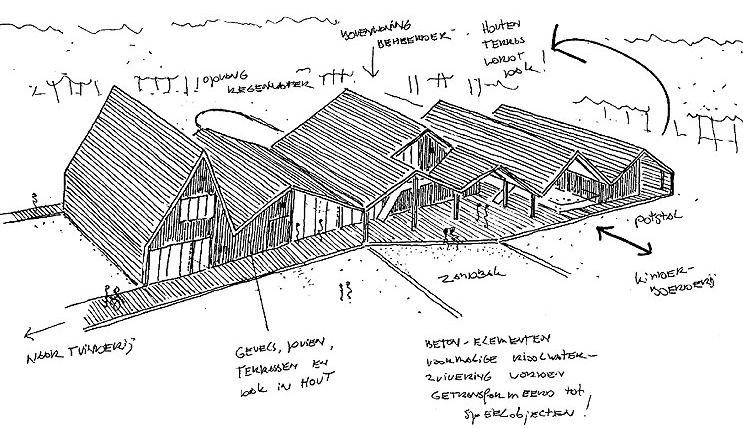 BOVENWONING
BEHEERDER
HOUTEN
TERRAS
WORDT
DOOK!
OPVANG
REGENWATER
POTSTAL
KINDER-
BOERDERIJ
ZANDBAK
NAAR TUINDERIJ
GEVELS, DAKEN,
TERRASSEN EN
DOOK IN HOUT
BETON-ELEMENTEN
VOORMALIGE RIOOLWATER-
ZUIVERING WORDEN
GETRANSFORMEERD TOT
SPEELOBJECTEN!